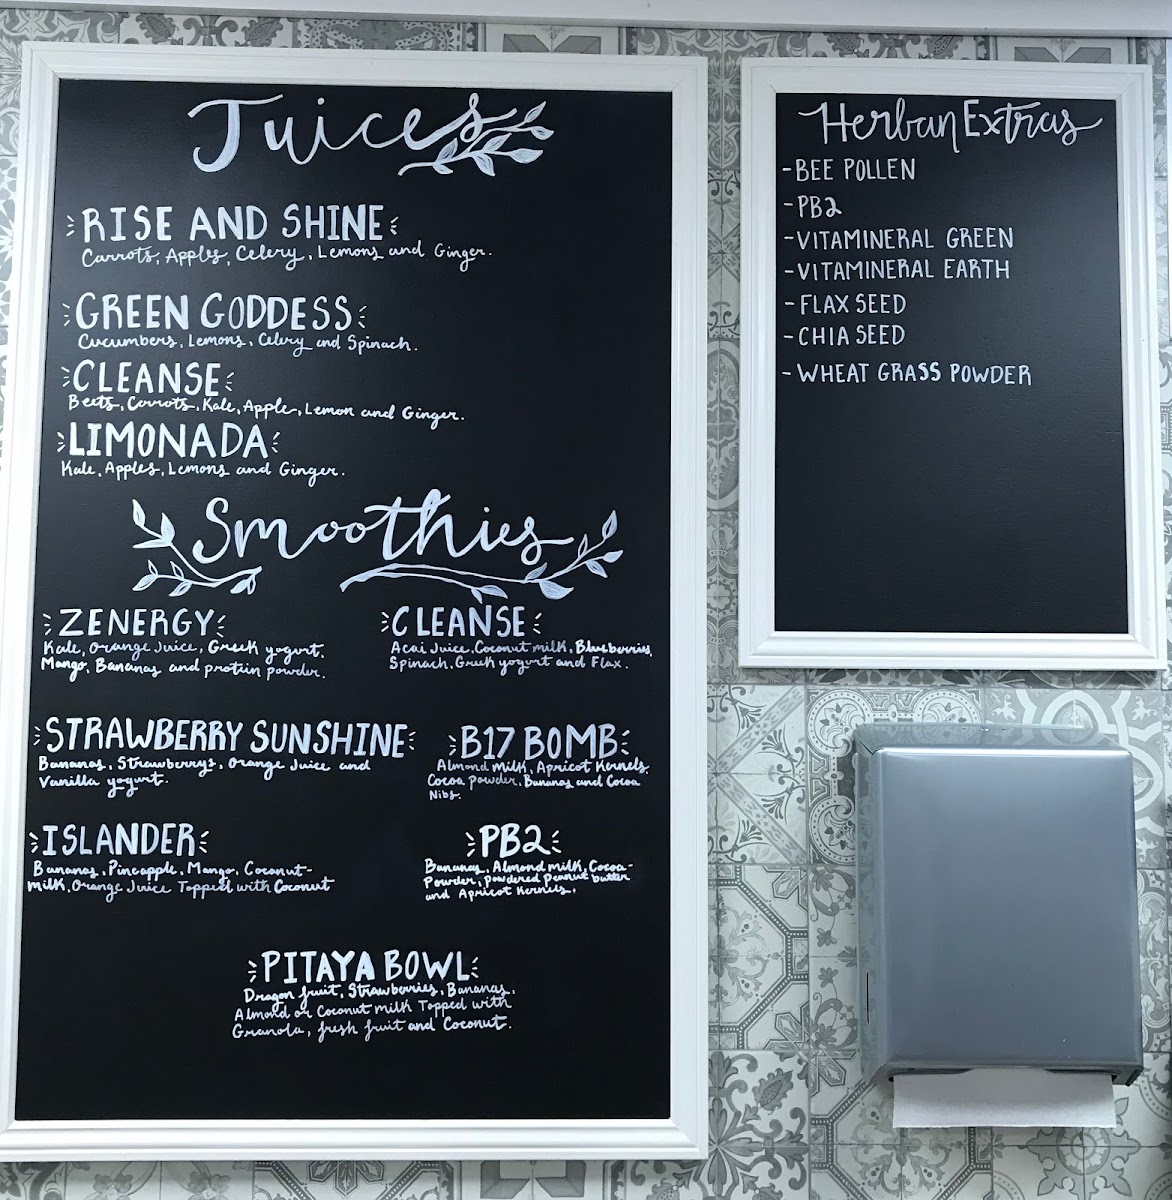 Juices
RISE AND SHINE
Carrots, Apples, Celery, Lemons and Ginger.
GREEN GODDESS
Cucumbers, Lemons, Celery and Spinach.
CLEANSE
Beets, Carrots, Kale, Apple, Lemon and Ginger.
LIMONADA
Kale, Apples, Lemons and Ginger.
Smoothies
ZENERGY
Kale, Orange Juice, Greek yogurt,
Mango, Bananas and protein powder.
CLEANSE
Acai Juice, Coconut milk, Blueberries,
Spinach, Greek yogurt and Flax.
STRAWBERRY SUNSHINE
Bananas, Strawberrys, Orange Juice and
Vanilla yogurt.
B17 BOMB
Almond Milk, Apricot Kernels,
Cocoa powder, Bananas and Cocoa
Nibs.
ISLANDER
Bananas, Pineapple, Mango, Coconut-
milk, Orange Juice Topped with Coconut
PB2
Bananas, Almond milk, Cocoa-
Powder, powdered peanut butter
and Apricot Kernels.
PITAYA BOWL
Dragon fruit, Strawberries, Bananas,
Almond or Coconut milk Topped with
Granola, fresh fruit and Coconut.
Herban Extras
- BEE POLLEN
- PB2
- VITAMINERAL GREEN
- VITAMINERAL EARTH
- FLAX SEED
- CHIA SEED
- WHEAT GRASS POWDER